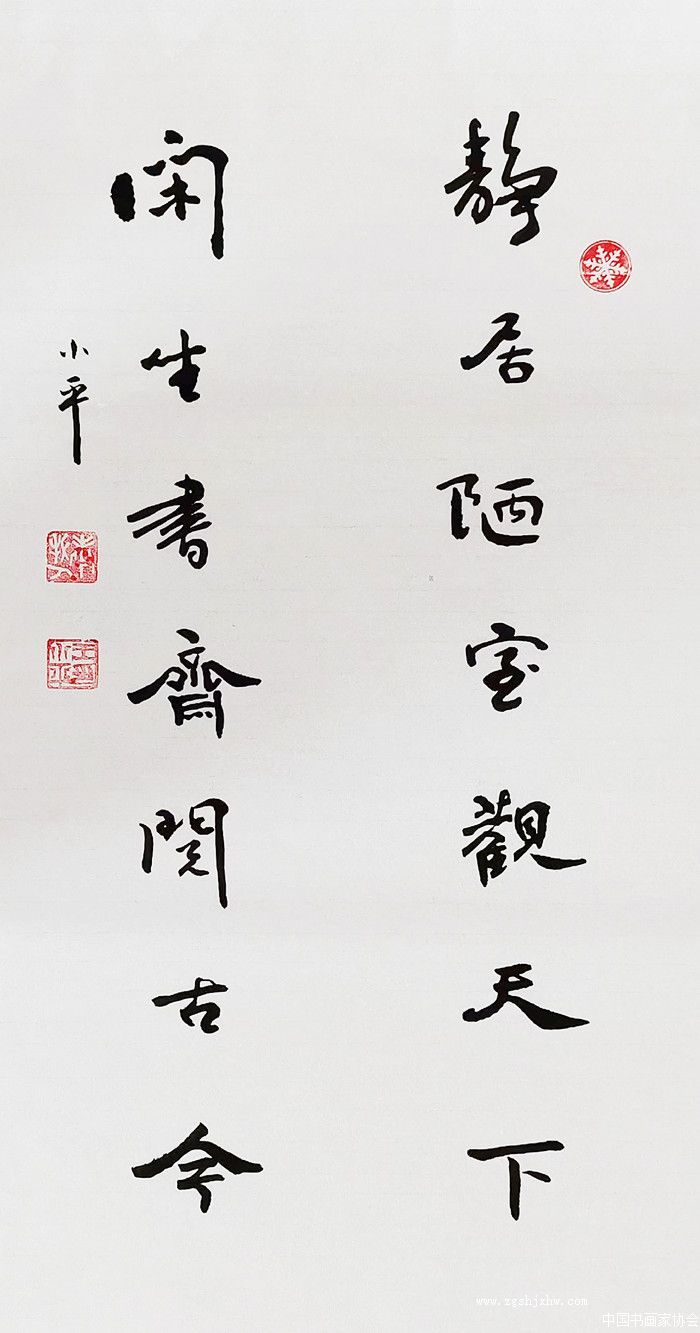 靜居陋室觀天下
閑坐書齋閱古今
小平
www.zgshjxhw.com
中国书画家协会